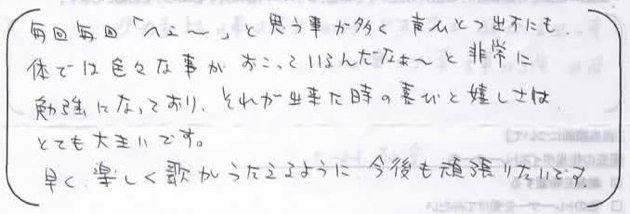 毎回毎回「へぇ〜」と思う事が多く 声ひとつ出すにも、
体では色々な事が おこっているんだなぁ〜と 非常に
勉強になっており、それが出来た時の喜びと嬉しさは
とても大きいです。
早く、楽しく歌がうたえるように 今後も頑張りたいです。